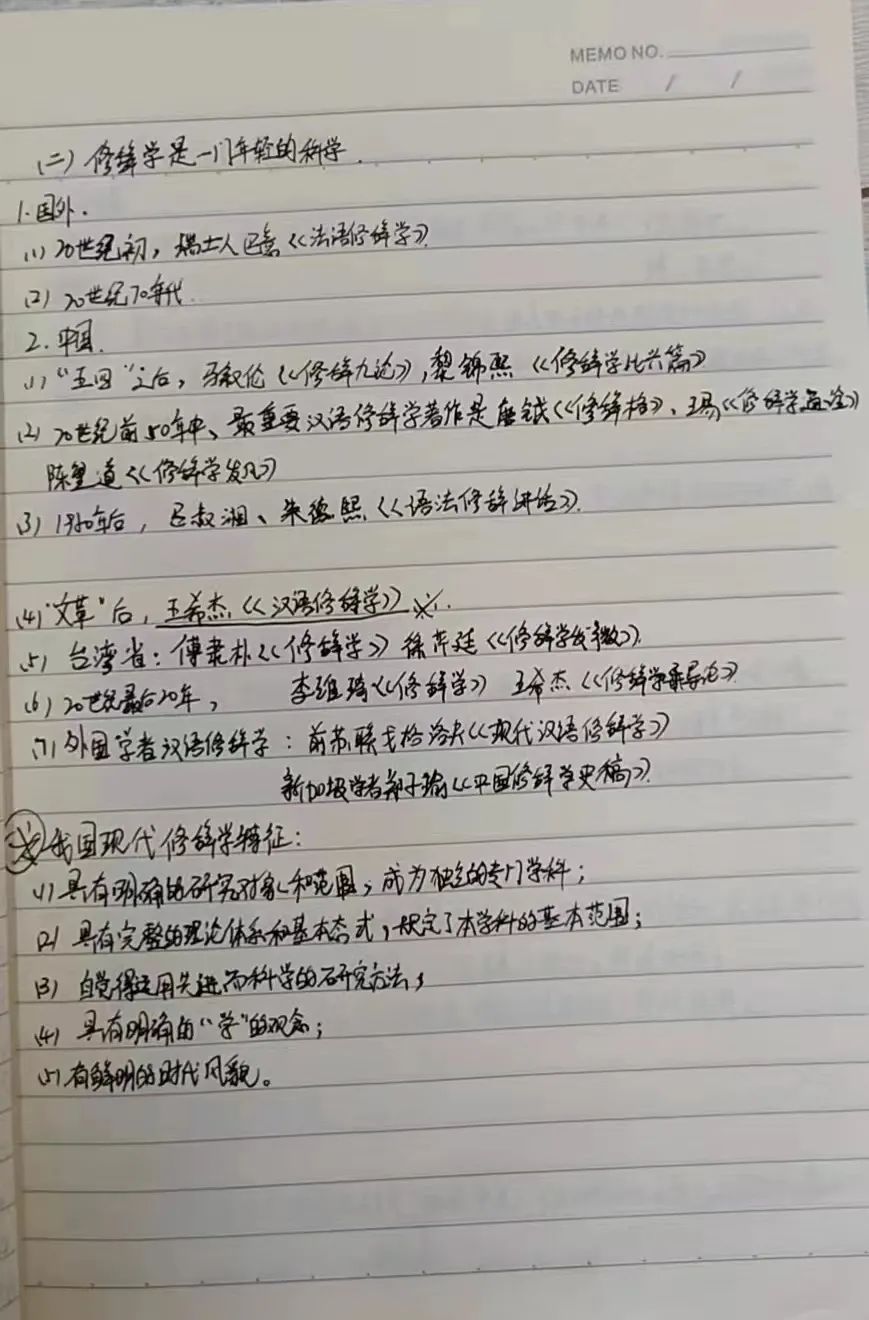 MEMO NO.
DATE / /
(二) 修辞学是一门年轻的科学.
1.国外.
(1) 20世纪初, 瑞士人巴意《法语修辞学》.
(2) 20世纪70年代.
2.中国.
(1) "五四"之后, 马叙伦《修辞九论》, 黎锦熙《修辞学比兴篇》
(2) 20世纪前50年中、最重要汉语修辞学著作是唐钺《修辞格》、王易《修辞学通诠》
陈望道《修辞学发凡》
(3) 1950年后, 吕叔湘、朱德熙《语法修辞讲话》.
(4) "文革"后, 王希杰《汉语修辞学》※.
(5) 台湾省: 傅隶朴《修辞学》 徐芹廷《修辞学发微》.
(6) 20世纪最后20年, 李维琦《修辞学》 王希杰《修辞学导论》.
(7) 外国学者汉语修辞学: 前苏联戈格洛夫《现代汉语修辞学》
新加坡学者郑子瑜《中国修辞学史稿》.
我国现代修辞学特征:
(1) 具有明确的研究对象和范围, 成为独立的专门学科;
(2) 具有完整的理论体系和基本态式, 规定了本学科的基本范围;
(3) 自觉得运用先进而科学的研究方法;
(4) 具有明确的"学"的观念;
(5) 有鲜明的时代风貌。